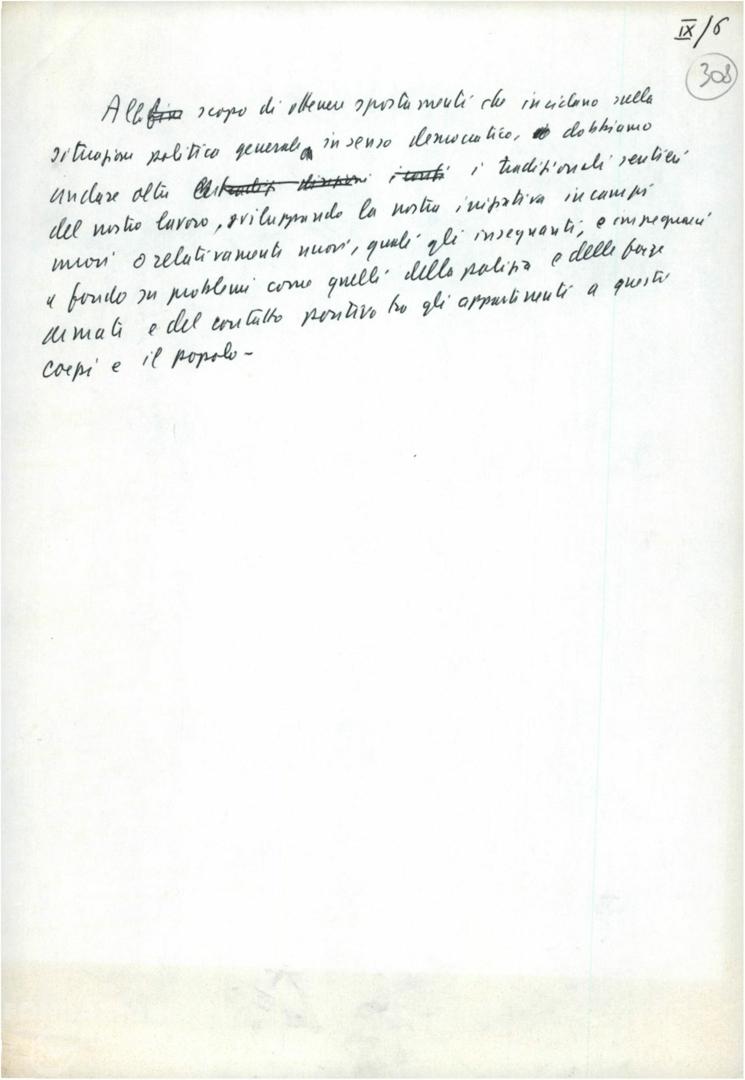 IX/6
308
Allo scopo di ottenere spostamenti che incidano sulla
situazione politica generale in senso democratico, dobbiamo
andare oltre i tradizionali sentieri
del nostro lavoro, sviluppando la nostra iniziativa in campi
nuovi o relativamente nuovi, quali gli insegnanti, e impegnarci
a fondo su problemi come quelli della polizia e delle forze
armate e del contatto positivo tra gli appartenenti a questi
corpi e il popolo-